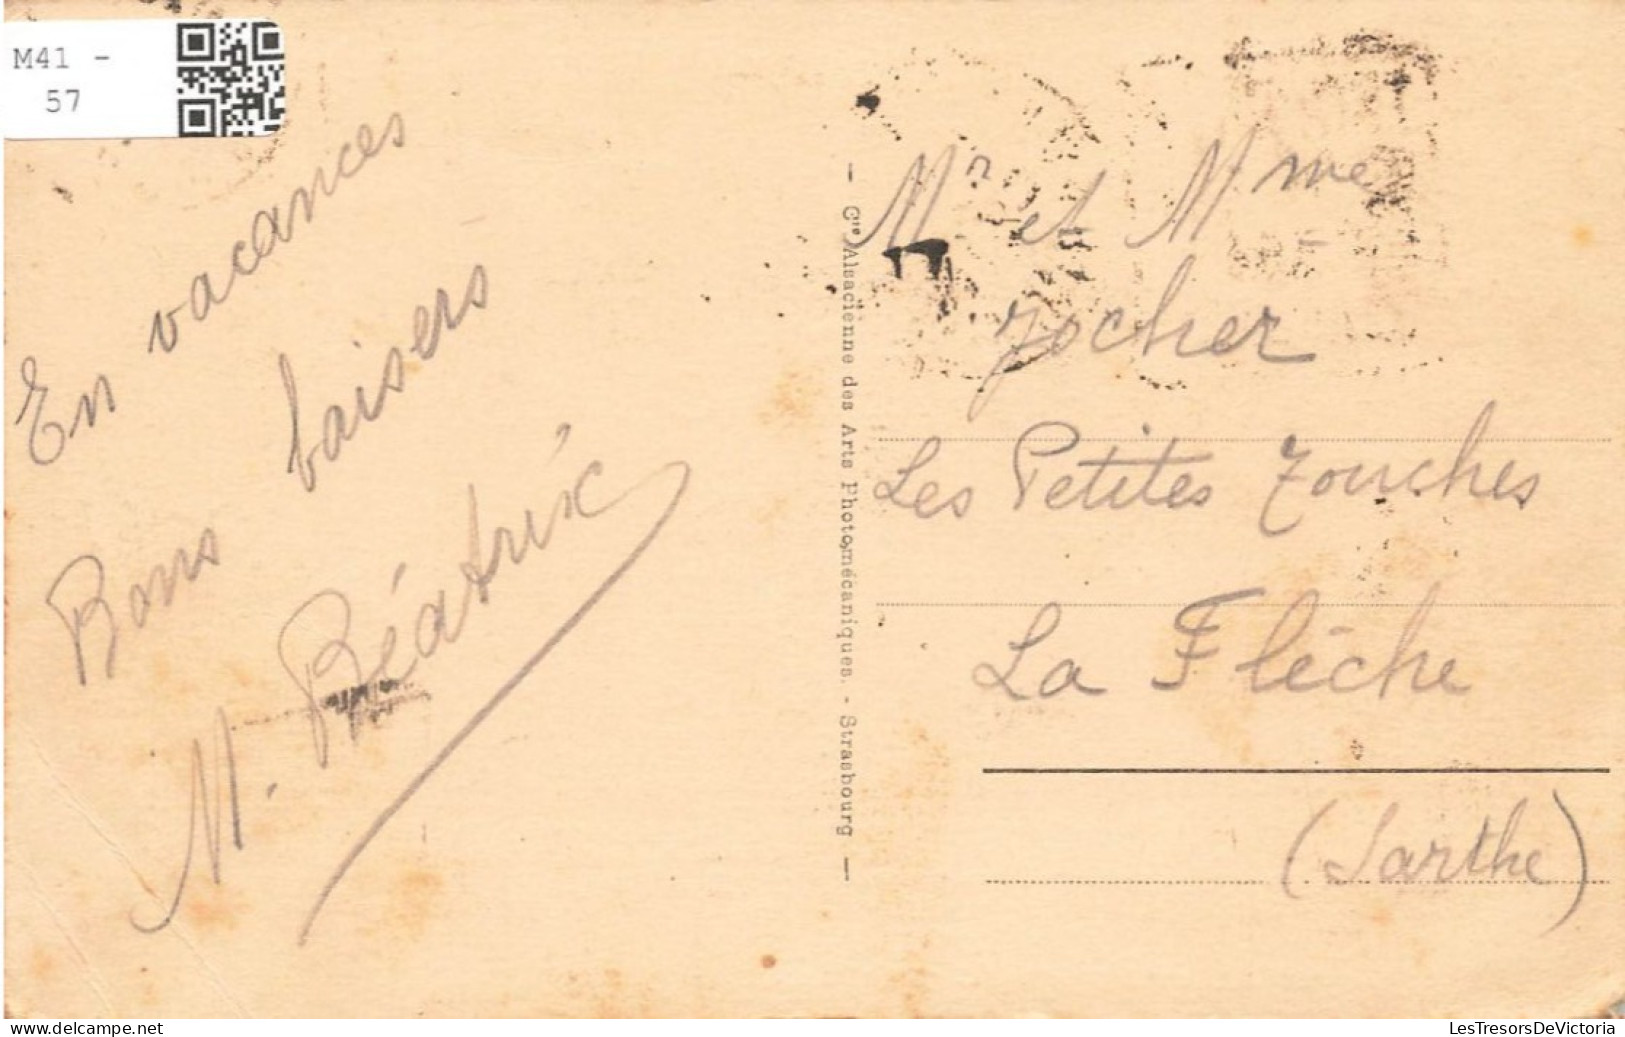 M41 -
57
En vacances
Bons baisers
M. Béatrix
— Cie Alsacienne des Arts Photomécaniques. - Strasbourg —
Mr et Mme
Jocher
Les Petites Touches
La Flèche
(Sarthe)
LesTresorsDeVictoria